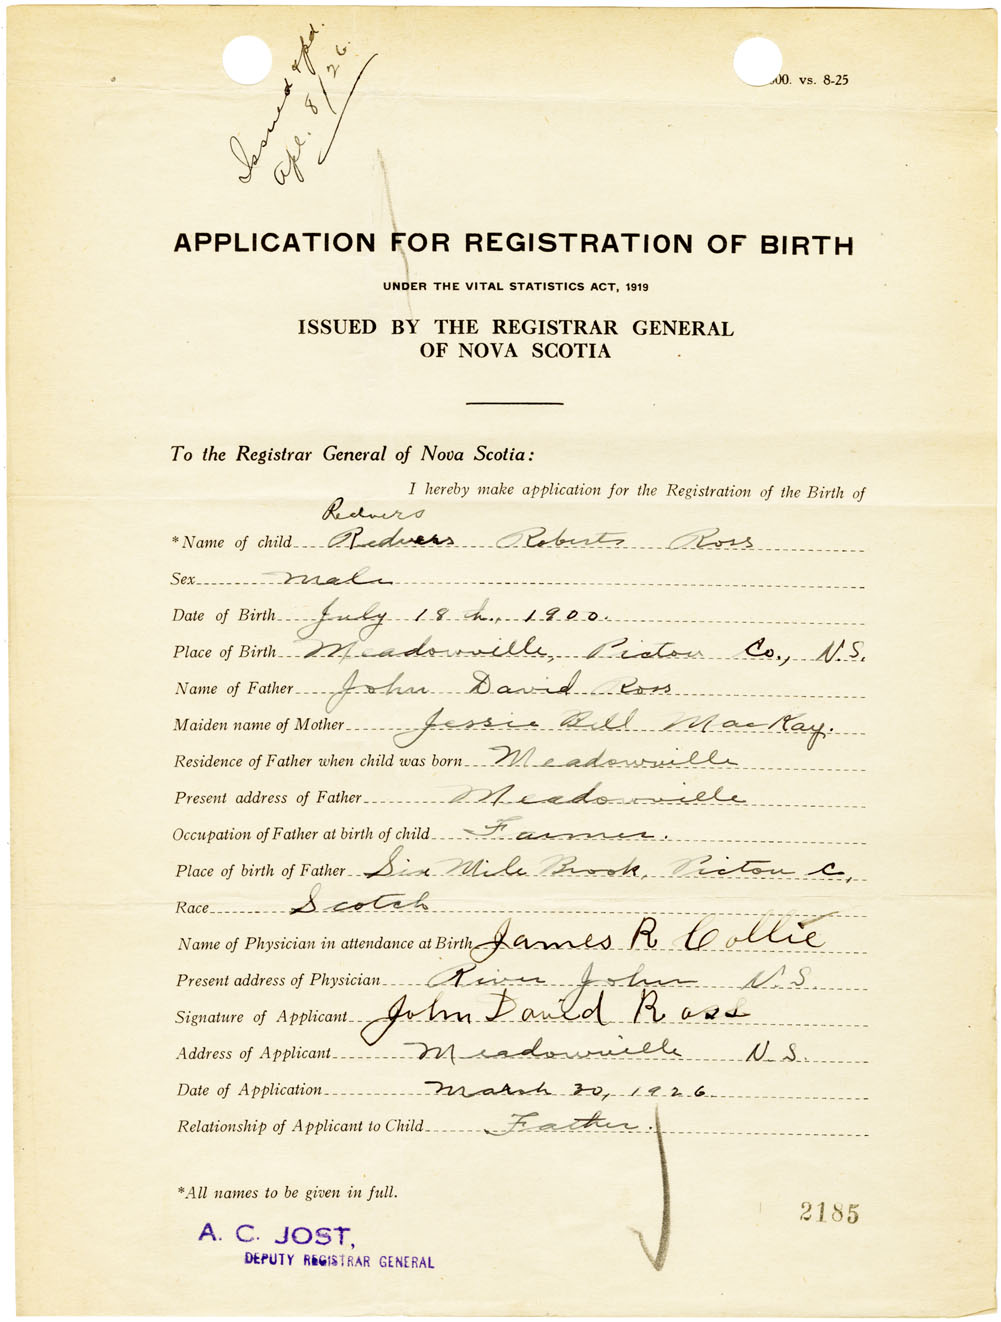 Issued & pd.
Apl. 8/26.
00. vs. 8-25
APPLICATION FOR REGISTRATION OF BIRTH
UNDER THE VITAL STATISTICS ACT, 1919
ISSUED BY THE REGISTRAR GENERAL
OF NOVA SCOTIA
To the Registrar General of Nova Scotia:
I hereby make application for the Registration of the Birth of
Redvers
*Name of child Redvers Roberts Ross
Sex Male
Date of Birth July 18th., 1900.
Place of Birth Meadowville, Pictou Co., N.S.
Name of Father John David Ross
Maiden name of Mother Jessie Bell MacKay.
Residence of Father when child was born Meadowville
Present address of Father Meadowville
Occupation of Father at birth of child Farmer.
Place of birth of Father Six Mile Brook, Pictou C,
Race Scotch
Name of Physician in attendance at Birth James R Collie
Present address of Physician River John N.S.
Signature of Applicant John David Ross
Address of Applicant Meadowville N.S.
Date of Application March 30, 1926
Relationship of Applicant to Child Father.
*All names to be given in full.
2185
A. C. JOST,
DEPUTY REGISTRAR GENERAL